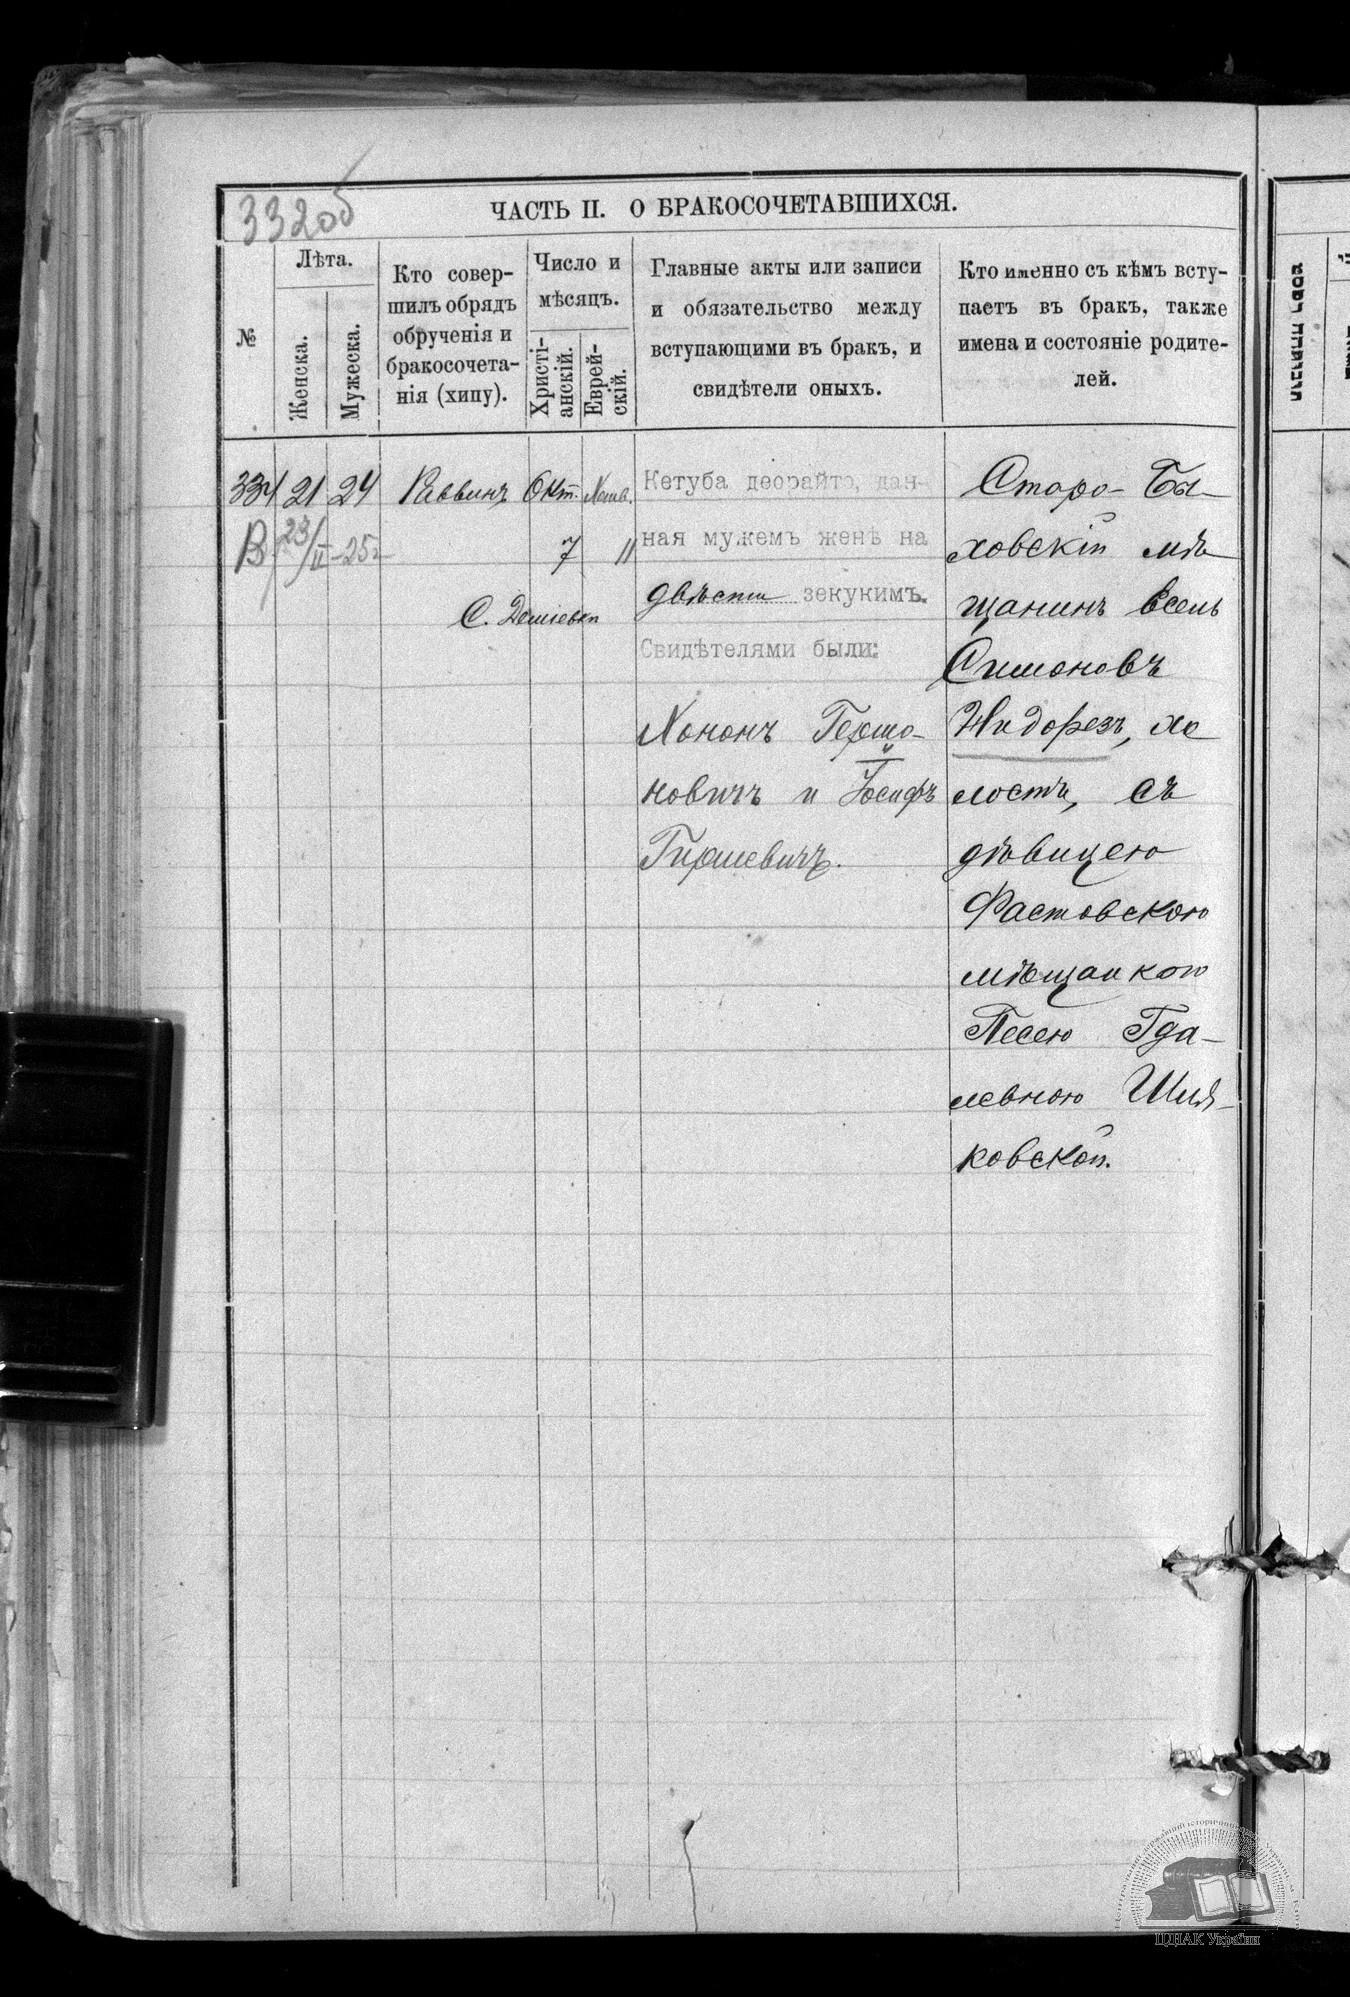 332об
ЧАСТЬ II. О БРАКОСОЧЕТАВШИХСЯ.
№
Лѣта.
Женска.
Мужеска.
Кто совер-
шилъ обрядъ
обрученія и
бракосочета-
нія (хипу).
Число и
мѣсяцъ.
Христі-
анскій.
Еврей-
скій.
Главные акты или записи
и обязательство между
вступающими въ бракъ, и
свидѣтели оныхъ.
Кто именно съ кѣмъ всту-
паетъ въ бракъ, также
имена и состояніе родите-
лей.
334 21 24 Раввинъ Окт. Хешв.
7 11
В 23/II-25г
С. Дешевой
Кетуба деорайто, дан-
ная мужемъ женѣ на
двѣсти зекукимъ.
Свидѣтелями были:
Хононъ Гершо-
новичъ и Іосифъ
Гиршевичъ.
Старо-Бы-
ховскій мѣ-
щанинъ
Симоновъ
Жидорезъ, хо
лостъ, съ
дѣвицею
Фастовскою
мѣщанкою
Песею Гда-
левною Шля-
ковской.
ЦДІАК України